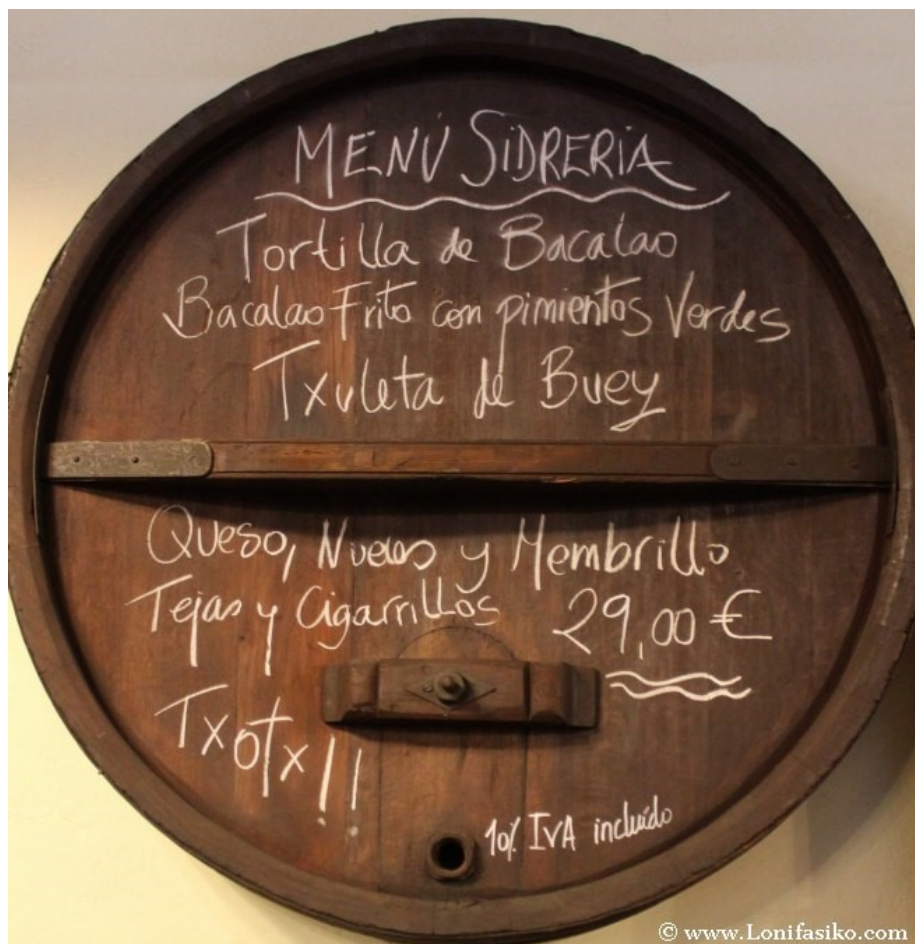 MENÚ SIDRERIA
Tortilla de Bacalao
Bacalao Frito con pimientos Verdes
Txuleta de Buey
Queso, Nueces y Membrillo
Tejas y Cigarrillos 29,00 €
Txotx!!
10% IVA incluído
© www.Lonifasiko.com